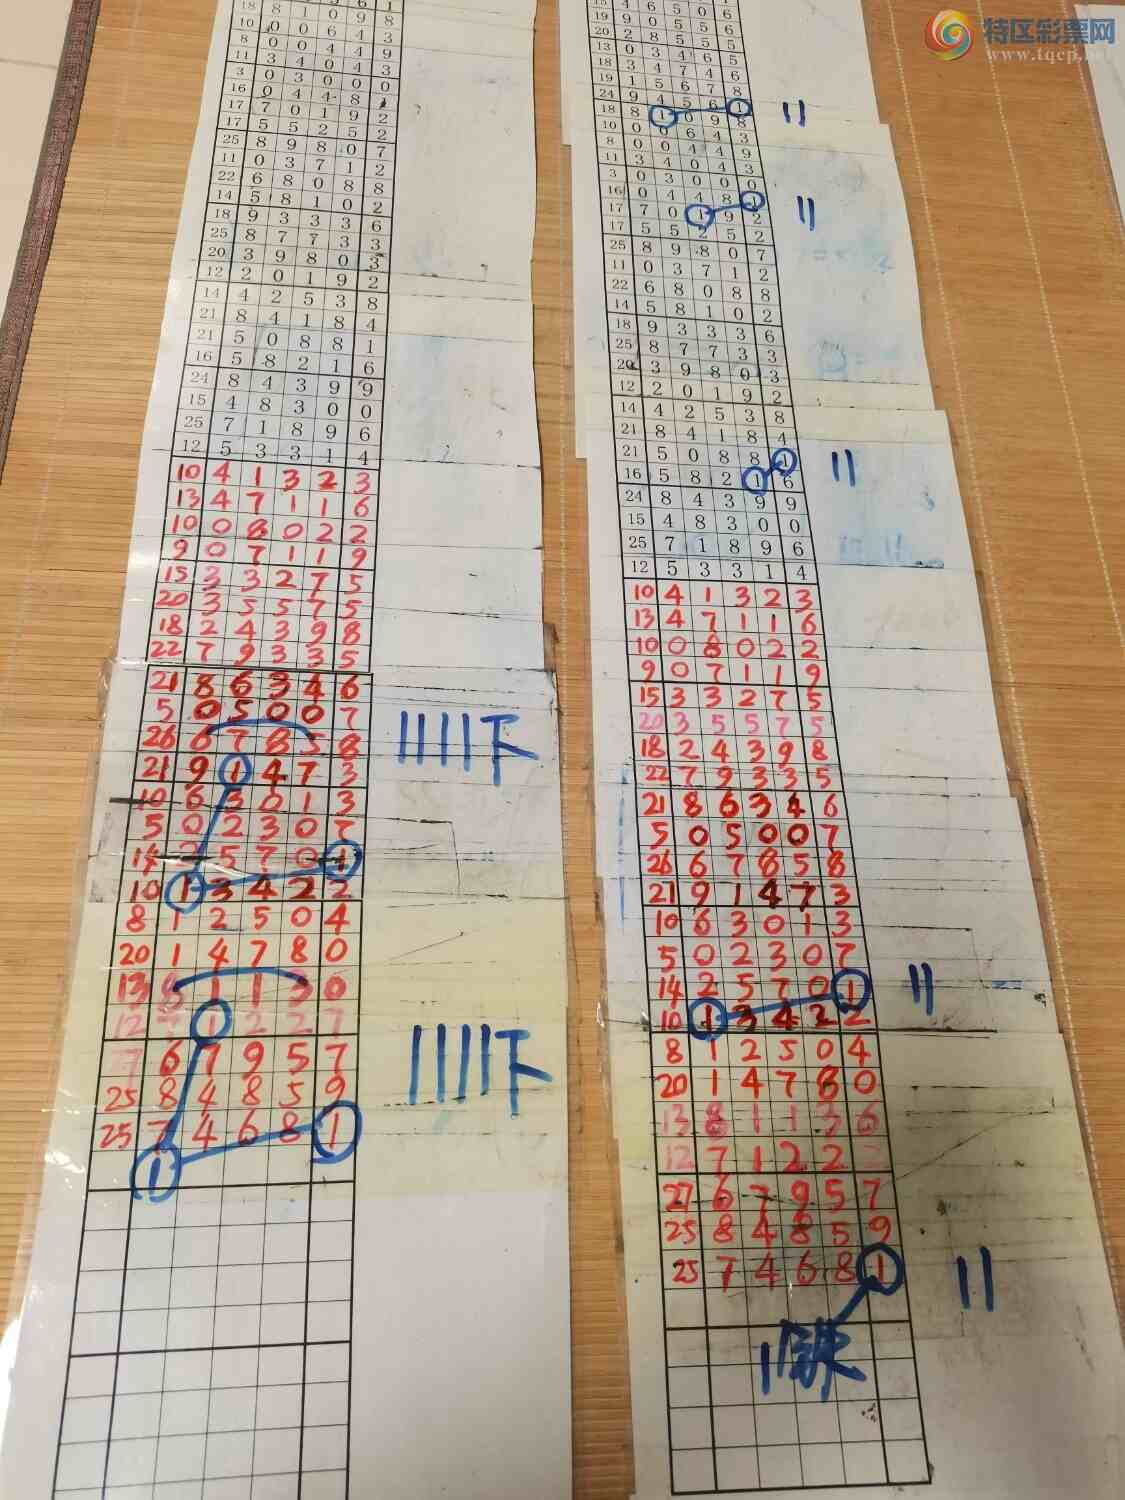 特区彩票网
www.tqcp.net
18 8 1 0 9 8
10 0 0 6 4 3
8 0 0 4 4 9
11 3 4 0 4 3
3 0 3 0 0 0
16 0 4 4 8 1
17 7 0 1 9 2
17 5 5 2 5 2
25 8 9 8 0 7
11 0 3 7 1 2
22 6 8 0 8 8
14 5 8 1 0 2
18 9 3 3 3 6
25 8 7 7 3 3
20 3 9 8 0 3
12 2 0 1 9 2
14 4 2 5 3 8
21 8 4 1 8 4
21 5 0 8 8 1
16 5 8 2 1 6
24 8 4 3 9 9
15 4 8 3 0 0
25 7 1 8 9 6
12 5 3 3 1 4
10 4 1 3 2 3
13 4 7 1 1 6
10 0 8 0 2 2
9 0 7 1 1 9
15 3 3 2 7 5
20 3 5 5 7 5
18 2 4 3 9 8
22 7 9 3 3 5
21 8 6 3 4 6
5 0 5 0 0 7
26 6 7 8 5 8
21 9 1 4 7 3
10 6 3 0 1 3
5 0 2 3 0 7
14 2 5 7 0 1
10 1 3 4 2 2
8 1 2 5 0 4
20 1 4 7 8 0
13 8 1 1 3 0
12 7 1 2 2 7
7 6 7 9 5 7
25 8 4 8 5 9
25 7 4 6 8 1
1
1111下
1111下
19 9 0 5 5 6
20 2 8 5 5 5
13 0 3 4 6 5
18 3 4 7 4 6
19 1 5 6 7 8
24 9 4 5 6 1
18 8 1 0 9 8
10 0 0 6 4 3
8 0 0 4 4 9
11 3 4 0 4 3
3 0 3 0 0 0
16 0 4 4 8 1
17 7 0 1 9 2
17 5 5 2 5 2
25 8 9 8 0 7
11 0 3 7 1 2
22 6 8 0 8 8
14 5 8 1 0 2
18 9 3 3 3 6
25 8 7 7 3 3
20 3 9 8 0 3
12 2 0 1 9 2
14 4 2 5 3 8
21 8 4 1 8 4
21 5 0 8 8 1
16 5 8 2 1 6
24 8 4 3 9 9
15 4 8 3 0 0
25 7 1 8 9 6
12 5 3 3 1 4
10 4 1 3 2 3
13 4 7 1 1 6
10 0 8 0 2 2
9 0 7 1 1 9
15 3 3 2 7 5
20 3 5 5 7 5
18 2 4 3 9 8
22 7 9 3 3 5
21 8 6 3 4 6
5 0 5 0 0 7
26 6 7 8 5 8
21 9 1 4 7 3
10 6 3 0 1 3
5 0 2 3 0 7
14 2 5 7 0 1
10 1 3 4 2 2
8 1 2 5 0 4
20 1 4 7 8 0
13 8 1 1 3 6
12 7 1 2 2
27 6 7 9 5 7
25 8 4 8 5 9
25 7 4 6 8 1
11
11
11
11
11